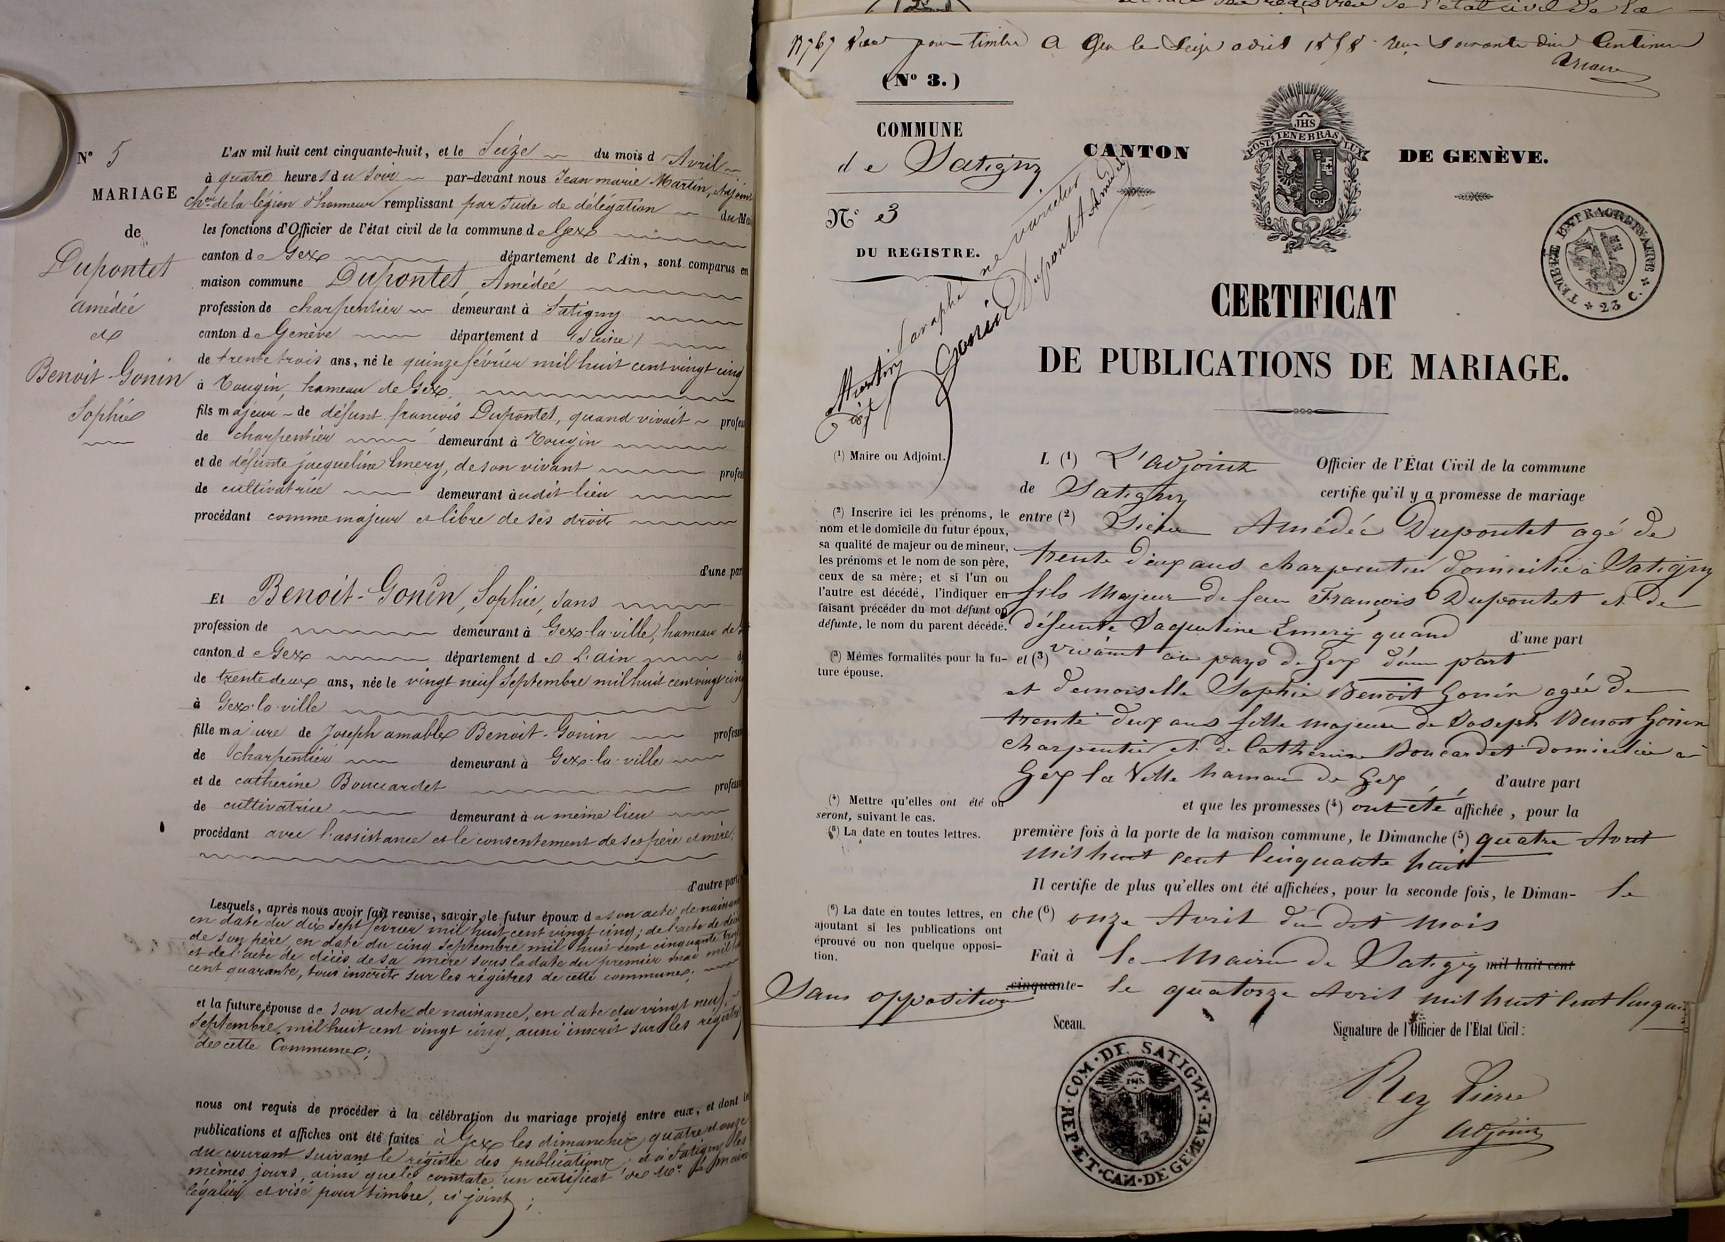 N° 5
MARIAGE
de
Dupontet
amédée
et
Benoit-Gonin
Sophie
L'AN mil huit cent cinquante-huit, et le Seize du mois d'Avril
à quatre heures du Soir par-devant nous Jean marie Martin, Adjoint
de la légion d'honneur remplissant par suite de délégation du M
les fonctions d'Officier de l'état civil de la commune de Gex
canton de Gex département de l'Ain, sont comparus en
maison commune Dupontet, Amédée
profession de charpentier demeurant à Satigny
canton de Genève département d (Suisse)
de trente trois ans, né le quinze février mil huit cent vingt cinq
à Tougin, hameau de Gex
fils majeur de défunt françois Dupontet, quand vivait profes
de charpentier demeurant à Tougin
et de défunte jacqueline Emery, de son vivant profes
de cultivatrice demeurant audit lieu
procédant comme majeur et libre de ses droits
d'une par
Et Benoit-Gonin, Sophie, sans
profession de demeurant à Gex-la-ville, hameau de
canton de Gex département de L'ain
de trente deux ans, née le vingt neuf Septembre mil huit cent vingt cinq
à Gex-la-ville
fille majeure de Joseph amable Benoit-Gonin profess
de charpentier demeurant à Gex-la-ville
et de catherine Bouccardet profess
de cultivatrice demeurant au même lieu
procédant avec l'assistance et le consentement de ses père et mère,
d'autre part.
Lesquels, après nous avoir fait remise, savoir, le futur époux de son acte de naissan
en date du dix Sept février mil huit cent vingt cinq; de l'acte de décè
de son père, en date du cinq Septembre mil huit cent cinquante trois
et de l'acte de décès de sa mère sous la date du premier mai mil
cent quarante, tous inscrits sur les régistres de cette commune;
et la future épouse de son acte de naissance, en date du vingt neuf
Septembre, mil huit cent vingt cinq, aussi inscrit sur les registres
de cette Commune;
nous ont requis de procéder à la célébration du mariage projeté entre eux, et dont le
publications et affiches ont été faites à Gex les dimanches quatre et onze
du courant suivant le régistre des publications, et à Satigny les
mêmes jours, ainsi que le constate un certificat de Mr le maire
légalisé et visé pour timbre, ci joint;
N° 767 Visé pour timbre à Gex le Seize avril 1858 reçu soixante dix Centimes
(N° 3.)
COMMUNE
de Satigny
N° 3
DU REGISTRE.
CANTON DE GENÈVE.
JHS
POST TENEBRAS LUX
TIMBRE EXTRAORDINAIRE
23 C.
ne varietur
Dupontet Amédée
Paraphé
Gonin
Martin
adj
CERTIFICAT
DE PUBLICATIONS DE MARIAGE.
(1) Maire ou Adjoint.
L (1) L'adjoint Officier de l'État Civil de la commune
de Satigny certifie qu'il y a promesse de mariage
(2) Inscrire ici les prénoms, le
nom et le domicile du futur époux,
sa qualité de majeur ou de mineur,
les prénoms et le nom de son père,
ceux de sa mère; et si l'un ou
l'autre est décédé, l'indiquer en
faisant précéder du mot défunt ou
défunte, le nom du parent décédé.
entre (2) Sieur Amédée Dupontet agé de
trente deux ans charpentier domicilié à Satigny
fils Majeur de feu François Dupontet et de
défunte Jaqueline Emery quand d'une part
(3) Mêmes formalités pour la fu-
ture épouse.
et (3) vivaient au pays de Gex d'une part
et demoiselle Sophie Benoit Gonin agée de
trente deux ans fille majeure de Joseph Benoit Gonin
charpentier et de Catherine Boucardet domiciliée à
Gex la Ville hameau de Gex d'autre part
(4) Mettre qu'elles ont été ou
seront, suivant le cas.
(5) La date en toutes lettres.
et que les promesses (4) ont été affichée, pour la
première fois à la porte de la maison commune, le Dimanche (5) quatre Avril
mil huit cent cinquante huit
Il certifie de plus qu'elles ont été affichées, pour la seconde fois, le Diman- le
(6) La date en toutes lettres, en
ajoutant si les publications ont
éprouvé ou non quelque opposi-
tion.
che (6) onze Avril du dit mois
Fait à la Mairie de Satigny mil huit cent
cinquante- le quatorze Avril mil huit cent cinquan
Sans opposition
Sceau.
Signature de l'Officier de l'État Civil:
COM. DE SATIGNY
REP. ET CAN. DE GENEVE
Rey Pierre
adjoint